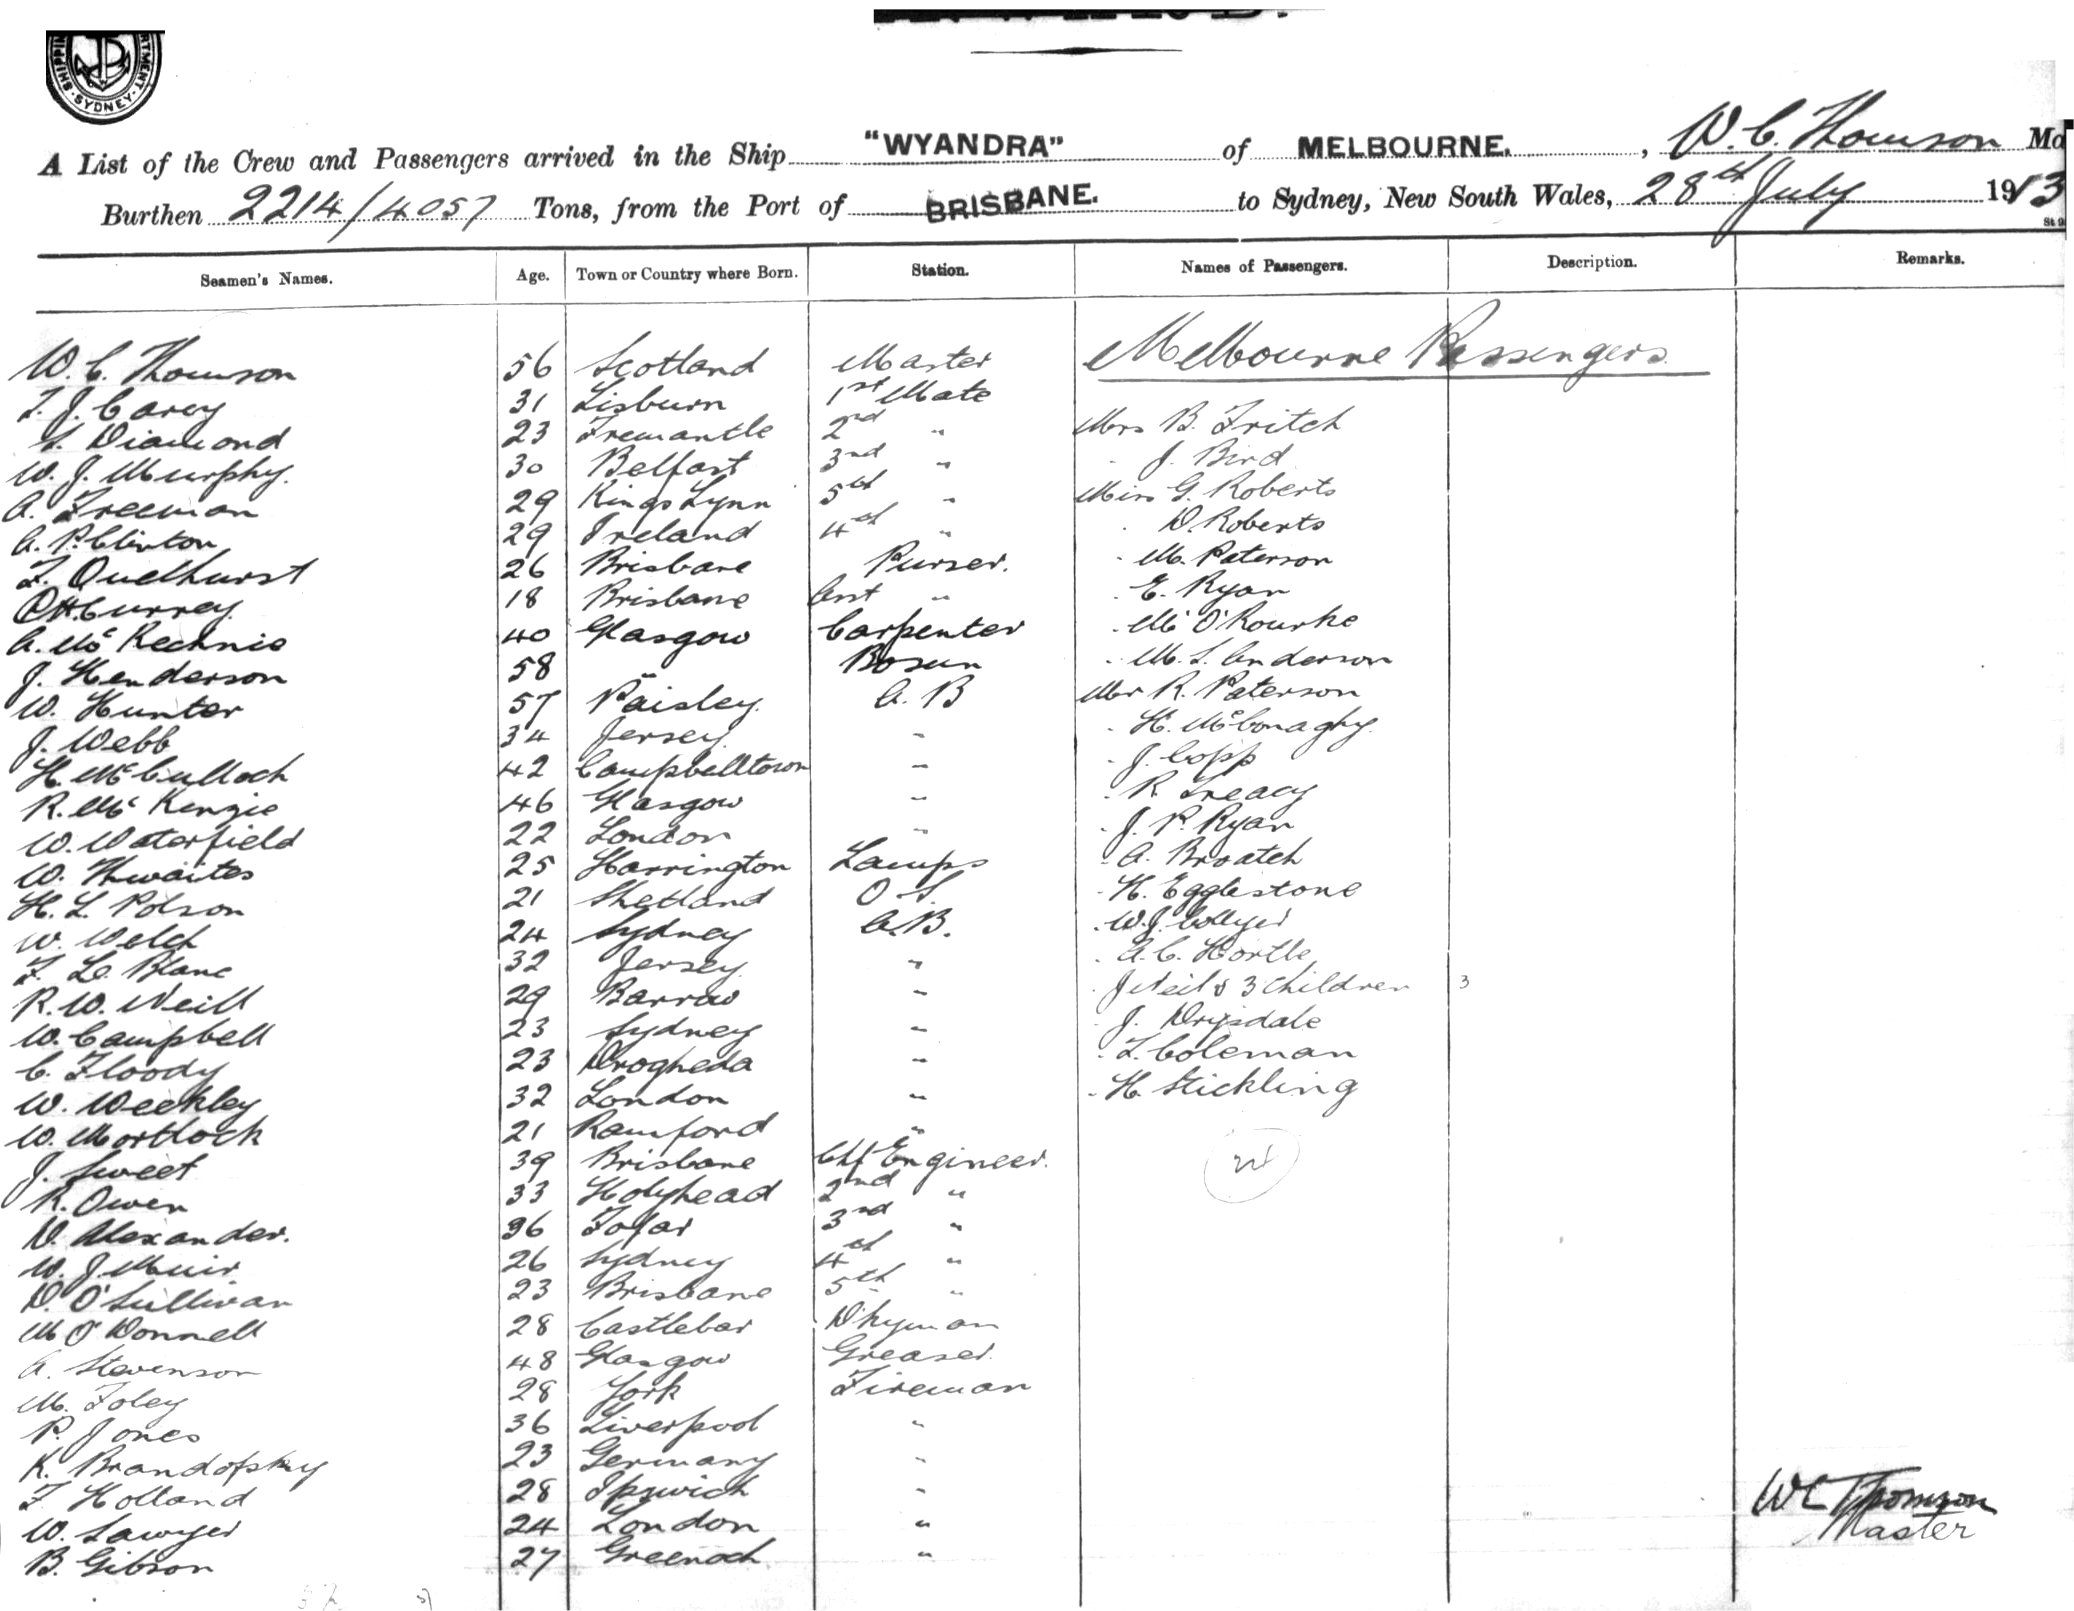 SYDNEY
A List of the Crew and Passengers arrived in the Ship "WYANDRA" of MELBOURNE. , W. C. Thomson Ma
Burthen 2214/4057 Tons, from the Port of BRISBANE. to Sydney, New South Wales, 28th July 1913
Seamen's Names. Age. Town or Country where Born. Station. Names of Passengers. Description. Remarks.
W. C. Thomson 56 Scotland Master Melbourne Passengers
T. J. Carey 31 Lisburn 1st Mate
S. Diamond 23 Fremantle 2nd " Mrs B. Fritch
W. J. Murphy. 30 Belfast 3rd " " J. Bird
A. Freeman 29 Kings Lynn 5th " Miss G. Roberts
A. P. Clinton 29 Ireland 4th " " D. Roberts
F. Ouelhurst 26 Brisbane Purser. " M. Paterson
Currey. 18 Brisbane Asst " " E. Ryan
A. McKechnie 40 Glasgow Carpenter " M O'Rourke
J. Henderson 58 " Bosun " M. S. Anderson
W. Hunter 57 Paisley. A. B Mr R. Paterson
J. Webb 34 Jersey. " " H. McConaghy.
H. McCulloch 42 Campbelltown " " J. Copp
R. McKenzie 46 Glasgow " " R. Treacy
W. Waterfield 22 London " " J. P. Ryan
W. Thwaites 25 Harrington Lamps " A. Broatch
H. L. Polson 21 Shetland O. S. " H. Egglestone
W. Welch 24 Sydney A.B. " W. J. Collyer
F. Le Blanc 32 Jersey. " " A. C. Hortle
R. W. Neill 29 Barrow " " J Neil & 3 Children 3
W. Campbell 23 Sydney " " J. Drysdale
C. Floody 23 Drogheda " " T. Coleman
W. Weekley 32 London " " H. Stickling
W. Mortlock 21 Romford "
J. Sweet 39 Brisbane Chf Engineer.
R. Owen 33 Holyhead 2nd "
D. Alexander. 36 Fofar 3rd "
W. J. Muir 26 Sydney 4th "
D. O'Sullivan 23 Brisbane 5th "
M O'Donnell 28 Castlebar Dkyman
A. Stevenson 48 Glasgow Greaser.
M. Foley 28 York Fireman
P. Jones 36 Liverpool "
K. Brandofsky 23 Germany "
F. Holland 28 Ipswich "
W. Sawyer 24 London "
B. Gibson 27 Greenock "
W C Thomson
Master